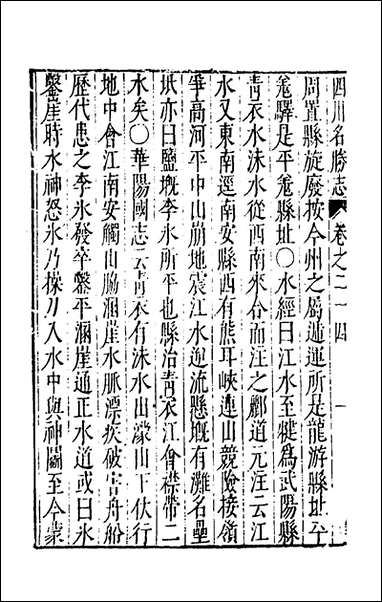 四川名勝志 卷之二十四 一
周置縣旋廢按今州之屬逓運所是龍游縣址平
羗驛是平羗縣址〇水經曰江水至犍爲武陽縣
青衣水沫水從西南來合而注之酈道元注云江
水又東南逕南安縣西有熊耳峽連山競險接嶺
爭高河平中山崩地震江水逆流懸溉有灘名壘
坻亦曰鹽溉李氷所平也縣治青衣江會襟帶二
水矣〇華陽國志云青衣有沫水出濛山下伏行
地中會江南安觸山脇溷崖水脉漂疾破害舟船
歷代患之李氷發卒鑿平溷崖通正水道或曰氷
鑿崖時水神怒氷乃操刀入水中與神鬭至今蒙